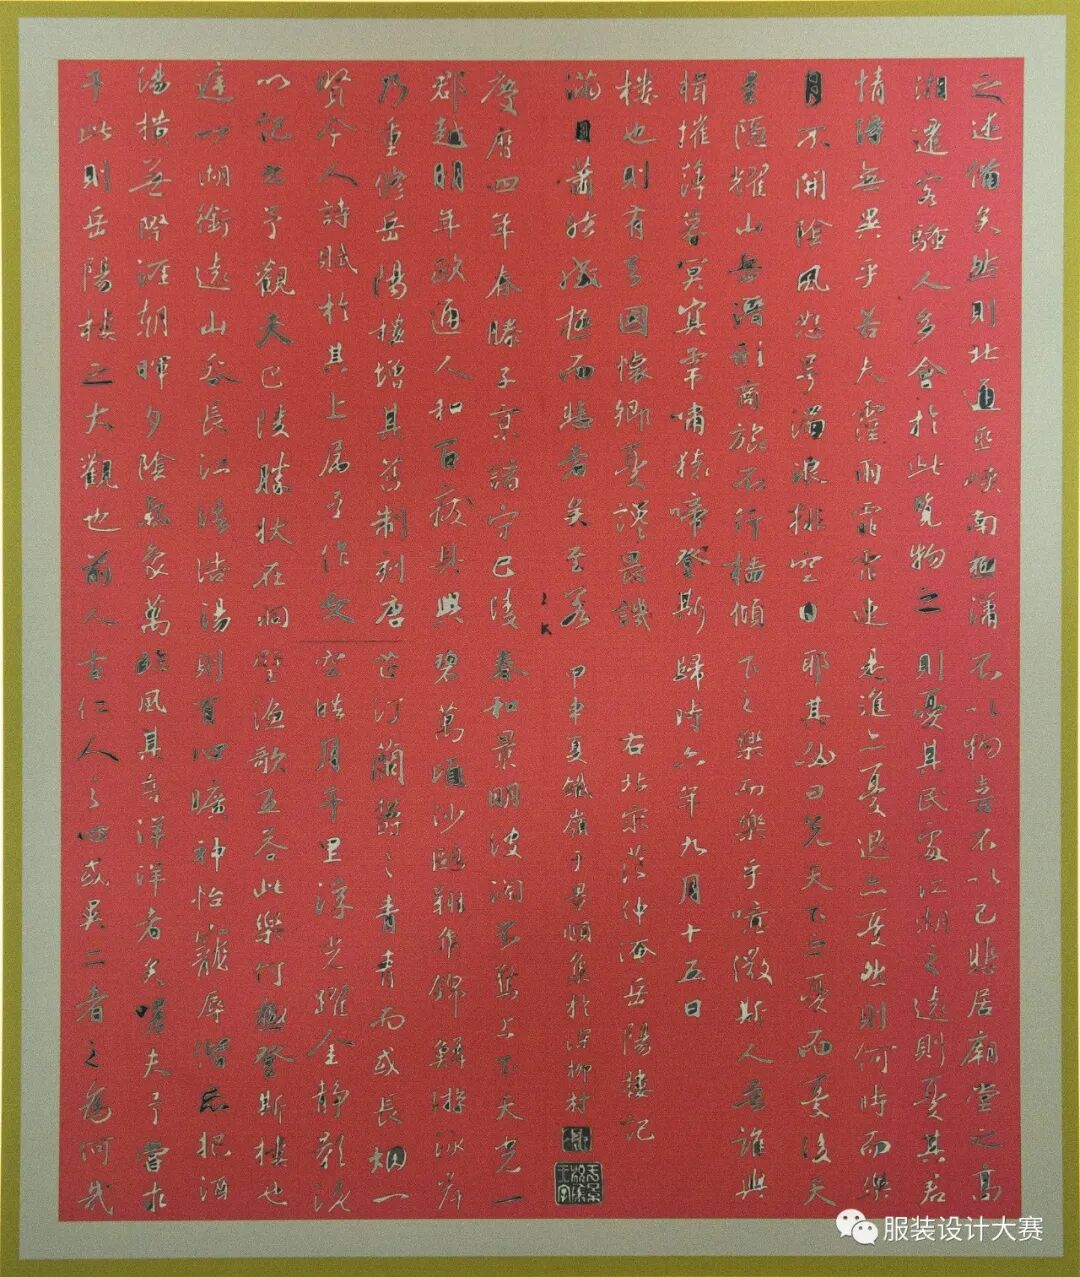 慶曆四年春滕子京謫守巴陵
郡越明年政通人和百廢具興
乃重修岳陽樓增其舊制刻唐
賢今人詩賦於其上属予作文
以記之予觀夫巴陵勝狀在洞
庭一湖銜遠山吞長江浩浩湯
湯橫無際涯朝暉夕陰氣象萬
千此則岳陽樓之大觀也前人
之述備矣然則北通巫峽南極瀟
湘遷客騷人多會於此覽物之
情得無異乎若夫霪雨霏霏連
月不開陰風怒号濁浪排空日
星隱耀山岳潛形商旅不行檣傾
楫摧薄暮冥冥虎嘯猿啼登斯
樓也則有去國懷鄉憂讒畏譏
滿目蕭然感極而悲者矣至若
春和景明波瀾不驚上下天光一
碧萬頃沙鷗翔集錦鱗游泳岸
芷汀蘭鬱々青青而或長烟一
空皓月千里浮光躍金静影沉
璧漁歌互答此樂何極登斯樓也
則有心曠神怡寵辱偕忘把酒
臨風其喜洋洋者矣嗟夫予嘗求
古仁人之心或異二者之為何哉
不以物喜不以己悲居廟堂之高
則憂其民處江湖之遠則憂其君
是進亦憂退亦憂然則何時而樂
耶其必曰先天下之憂而憂後天
下之樂而樂乎噫微斯人吾誰與
歸時六年九月十五日
右北宋范仲淹岳陽樓記
甲申夏鐵嶺于集於深柳村
服装设计大赛